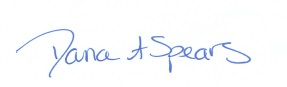 Dana A Spears